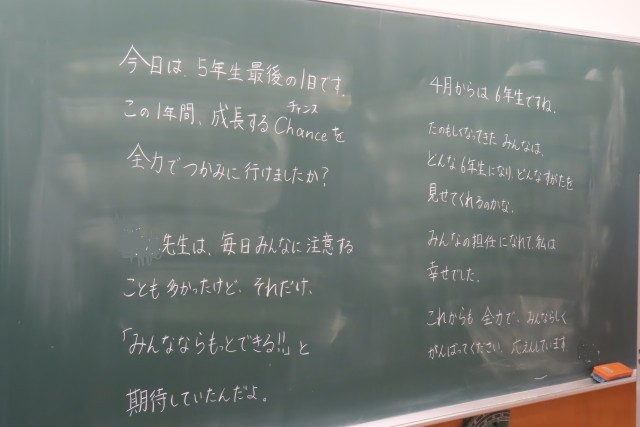 今日は、5年生最後の1日です。
この1年間、成長するChanceを
チャンス
全力でつかみに行けましたか?
先生は、毎日みんなに注意する
ことも多かったけど、それだけ、
「みんなならもっとできる!!」と
期待していたんだよ。
4月からは6年生ですね。
たのもしくなってきたみんなは、
どんな6年生になり、どんなすがたを
見せてくれるのかな。
みんなの担任になれて、私は
幸せでした。
これからも全力で、みんならしく
がんばってください。応えんしています